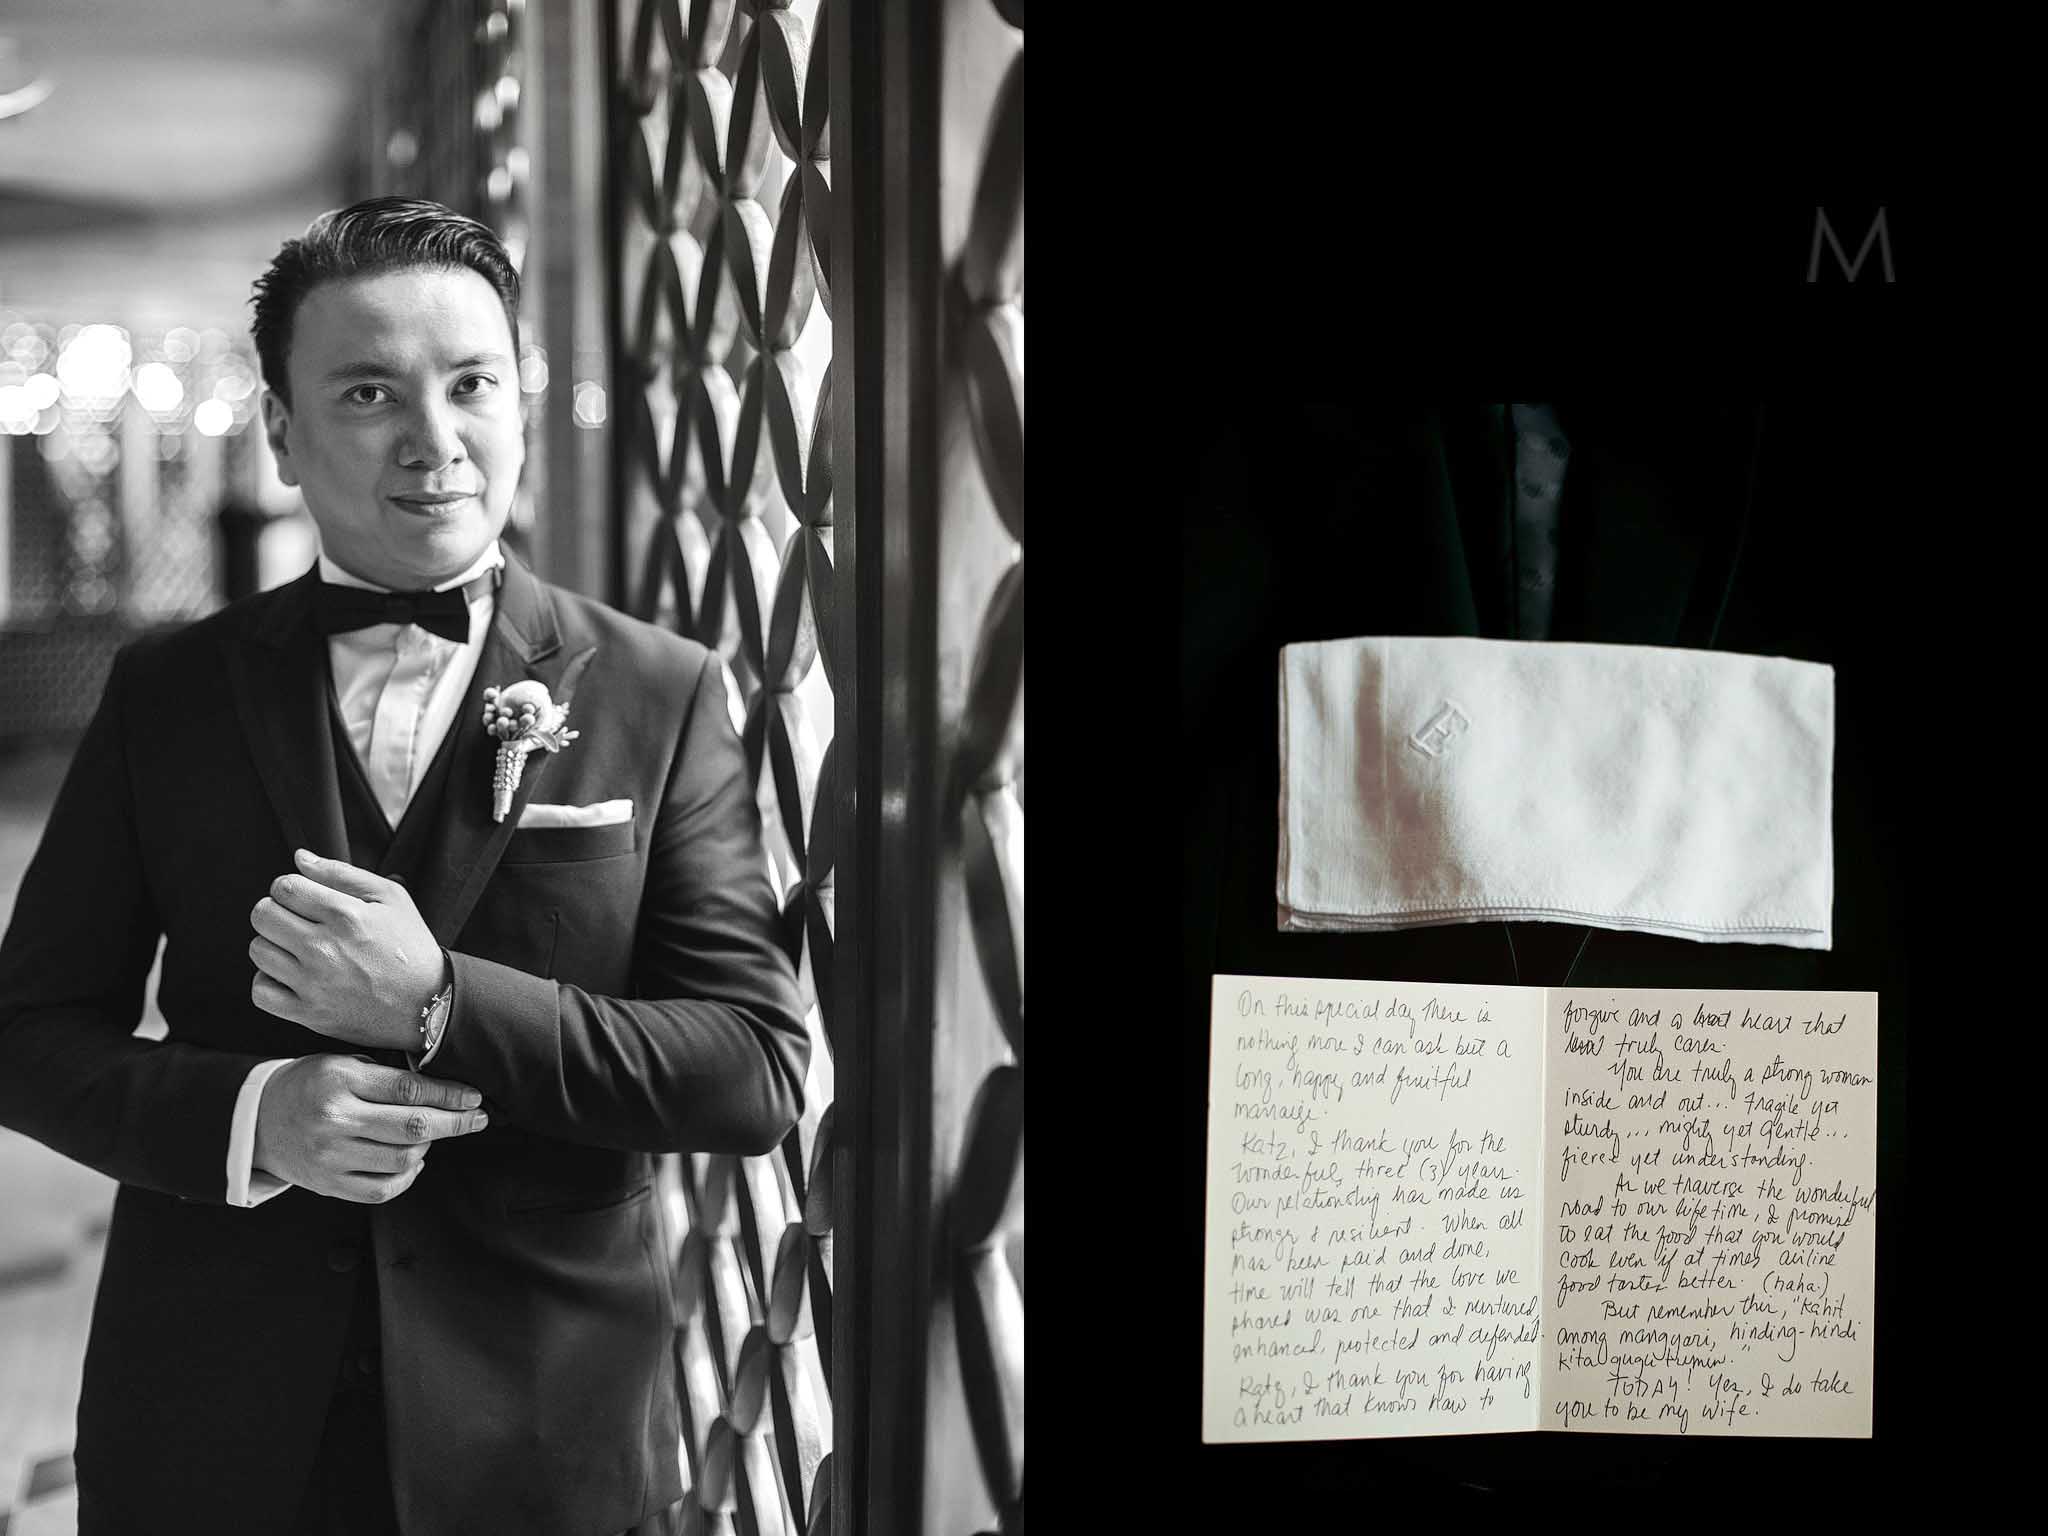 M
E
On this special day there is
nothing more I can ask but a
long, happy and fruitful
marraige.
Katz, I thank you for the
wonderful, three (3) years.
Our relationship has made us
stronger & resilient. When all
has been paid and done,
time will tell that the love we
shared was one that I nurtured,
enhanced, protected and defended.
Katz, I thank you for having
a heart that knows how to
forgive and a heart that
truly cares.
You are truly a strong woman
inside and out... Fragile yet
sturdy... mighty yet gentle...
fierce yet understanding.
As we traverse the wonderful
road to our lifetime, I promise
to eat the food that you would
cook even if at times airline
food tastes better. (haha.)
But remember this, "Kahit
anong mangyari, hinding-hindi
kita gugutumin."
TODAY! Yes, I do take
you to be my wife.